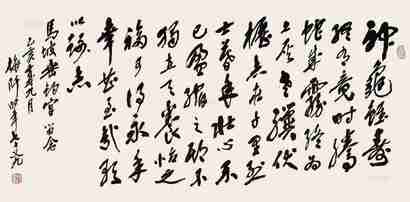 神龜雖壽
猶有竟時騰
蛇乘霧終為
土灰老驥伏
櫪志在千里烈
士暮年壯心不
已盈縮之期不
獨在天養怡之
福可得永年
幸甚至哉歌
以詠志
乙亥年九月